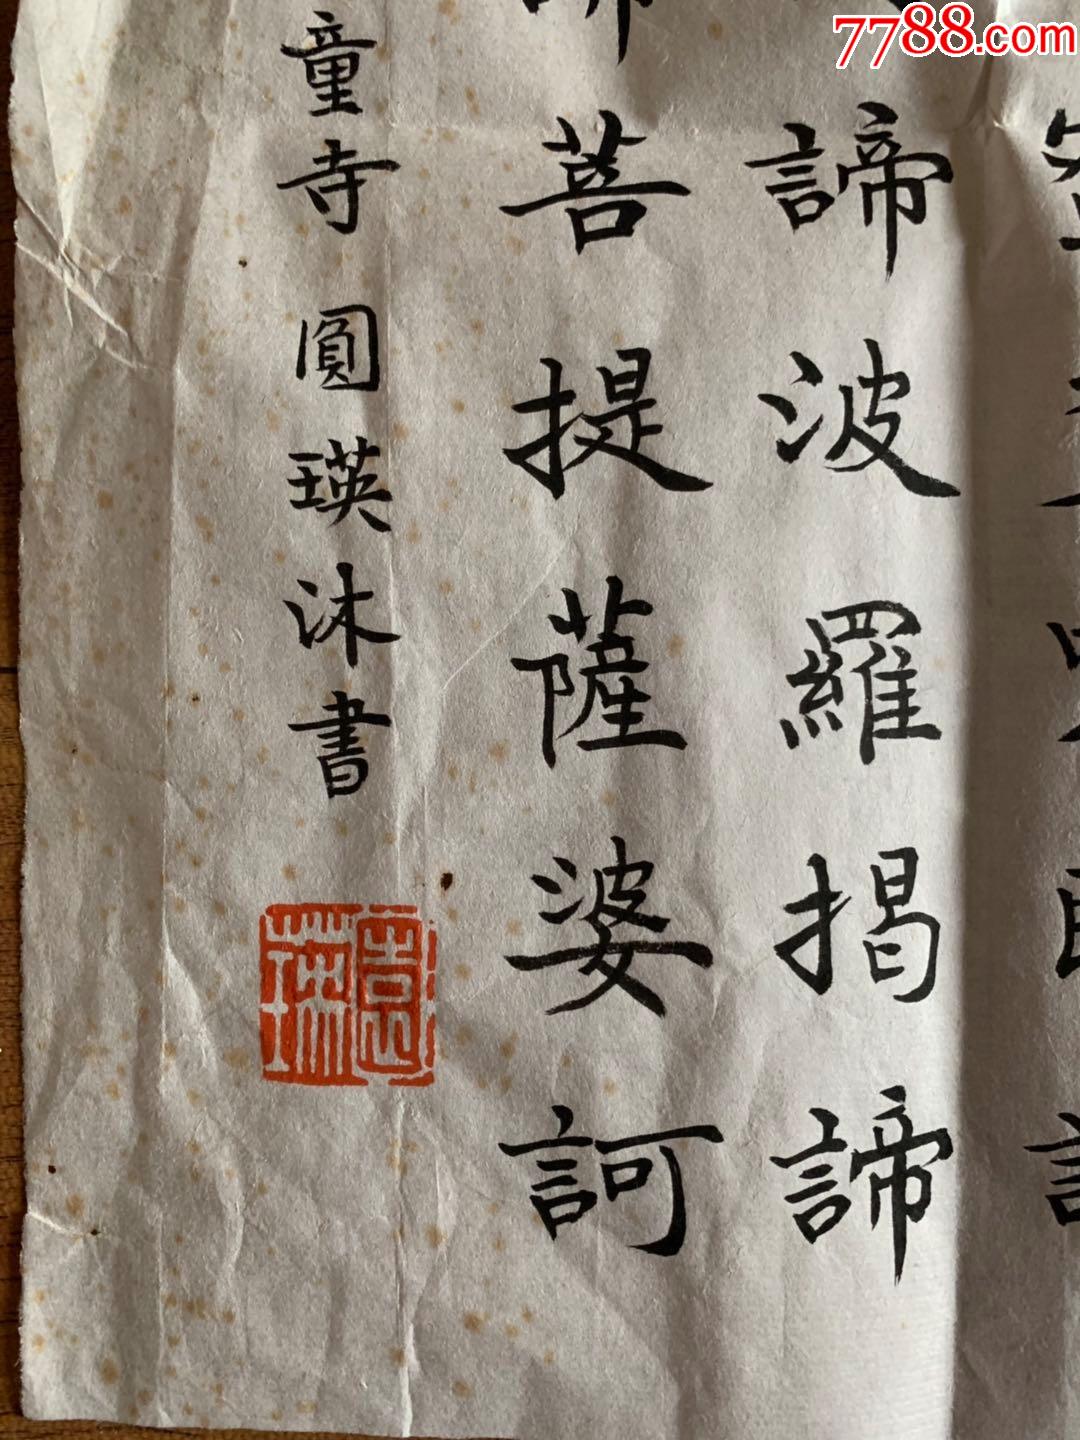 7788.com
諦波羅揭諦
菩提薩婆訶
童寺圓瑛沐書